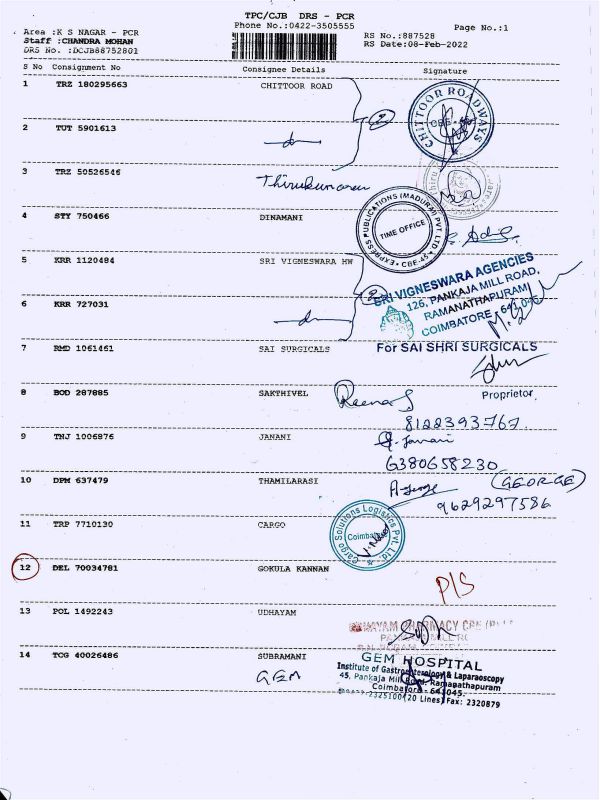 TPC/CJB DRS - PCR
Phone No.:0422-3505555
Page No.:1
Area :K S NAGAR - PCR
Staff :CHANDRA MOHAN
DRS No. :DCJB88752801
RS No.:887528
RS Date:08-Feb-2022
S No Consignment No Consignee Details Signature
1 TRZ 180295663 CHITTOOR ROAD
CHITTOOR ROADWAYS
CBE-45
2 TUT 5901613
2
3 TRZ 50526546 Thirukumaran
4 STY 750466 DINAMANI
EXPRESS PUBLICATIONS (MADURAI) PVT. LTD
TIME OFFICE
CBE-45
5 KRR 1120484 SRI VIGNESWARA HW
SRI VIGNESWARA AGENCIES
126, PANKAJA MILL ROAD,
RAMANATHAPURAM
COIMBATORE - 641 045
6 KRR 727031
2
7 RMD 1061461 SAI SURGICALS
For SAI SHRI SURGICALS
Proprietor
8 BOD 287885 SAKTHIVEL
8122393767
9 TNJ 1006876 JANANI
Janani
6380658230
10 DPM 637479 THAMILARASI
A. George (GEORGE)
9629297586
11 TRP 7710130 CARGO
Cargo Solutions Logistics Pvt. Ltd.
Coimbatore
12 DEL 70034781 GOKULA KANNAN
P/S
13 POL 1492243 UDHAYAM
PHARMACY CBE
PANKAJA MILL
14 TCG 40026486 SUBRAMANI
GEM
GEM HOSPITAL
Institute of Gastroenterology & Laparaoscopy
45, Pankaja Mill Road, Ramanathapuram
Coimbatore - 641045.
2325100 (20 Lines) Fax: 2320879